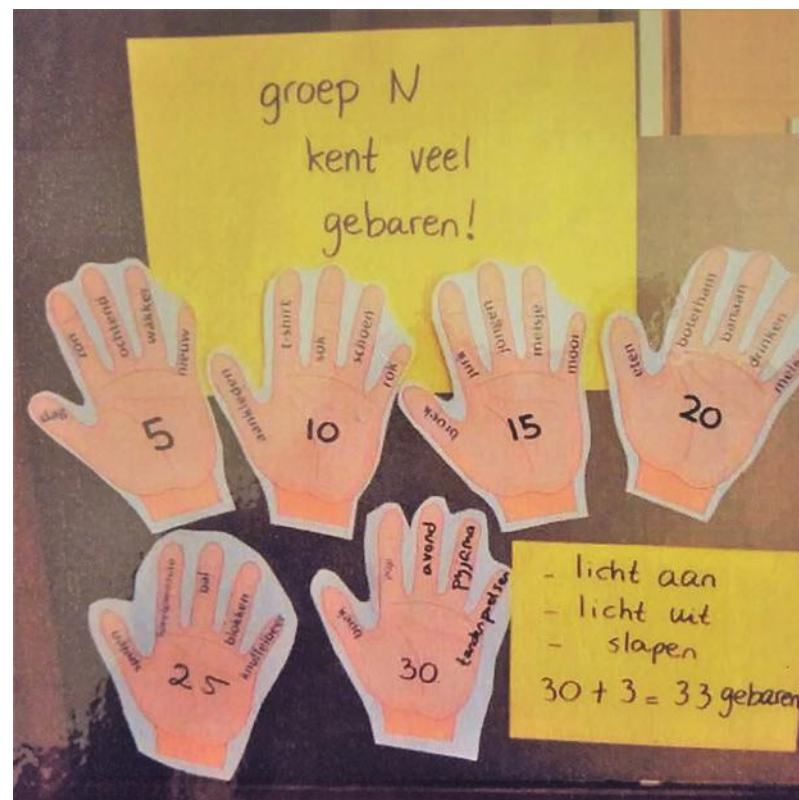 groep N
kent veel
gebaren!
dag
zon
ochtend
wakker
nieuw
5
aankleden
t-shirt
sok
schoen
rok
10
broek
jurk
jongen
meisje
mooi
15
eten
boterham
banaan
drinken
melk
20
spelen
bal
blokken
knuffelbeer
25
boek
pop
avond
pyjama
tandenpoetsen
30
- licht aan
- licht uit
- slapen
30 + 3 = 33 gebaren